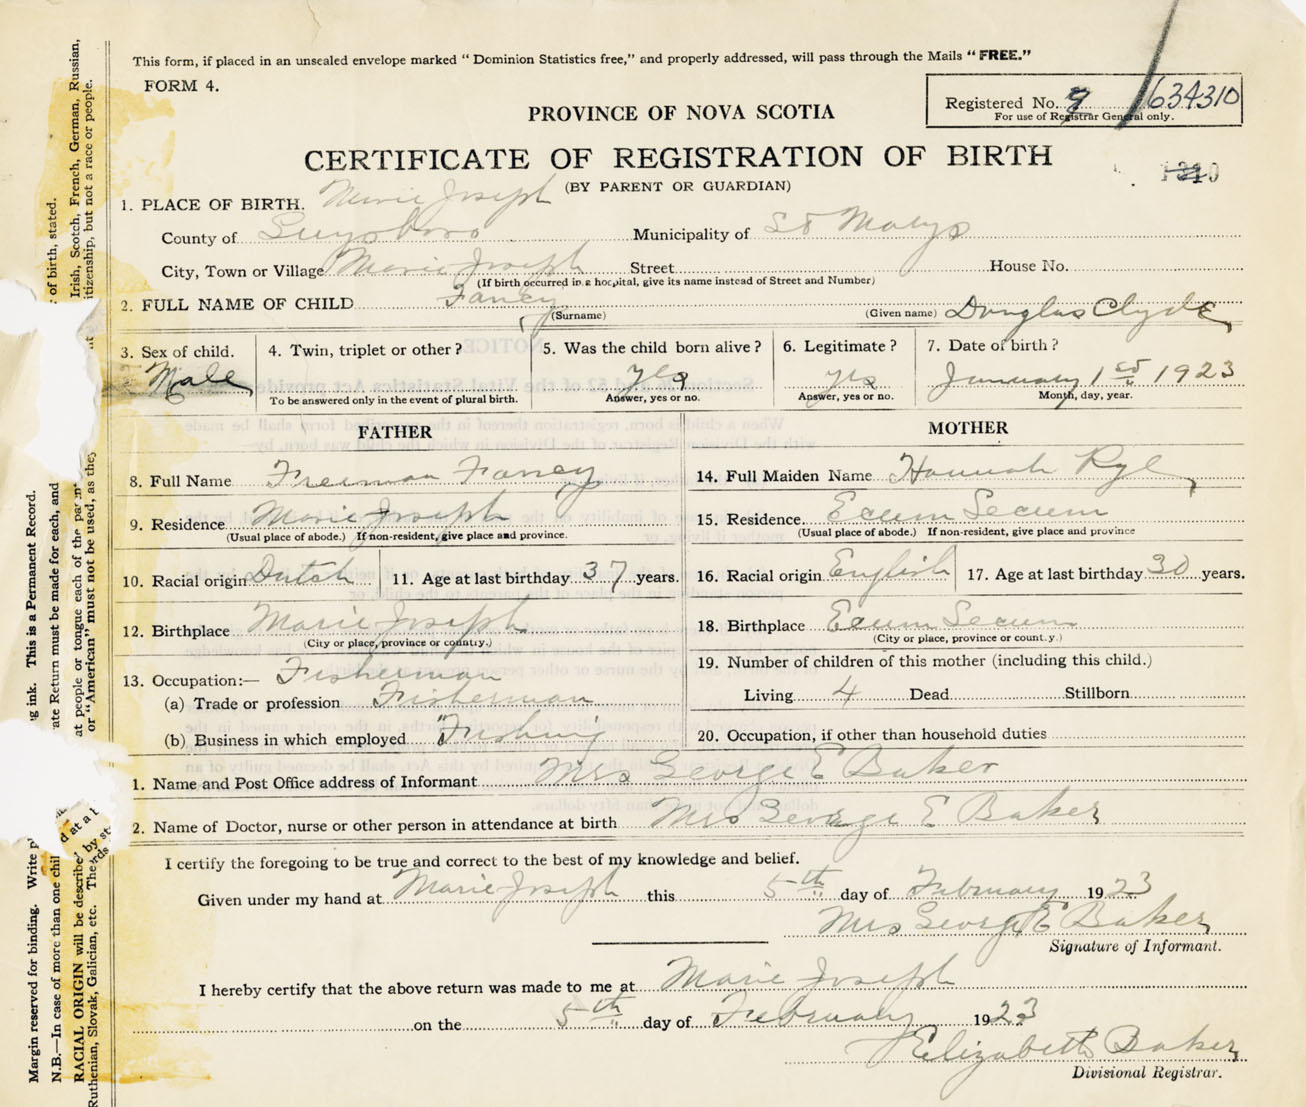 This form, if placed in an unsealed envelope marked "Dominion Statistics free," and properly addressed, will pass through the Mails "FREE."
FORM 4.
Registered No. 9 634310
For use of Registrar General only.
PROVINCE OF NOVA SCOTIA
CERTIFICATE OF REGISTRATION OF BIRTH
(BY PARENT OR GUARDIAN)
1. PLACE OF BIRTH. Marie Joseph
County of Guysboro Municipality of St Marys
City, Town or Village Marie Joseph Street House No.
(If birth occurred in a hospital, give its name instead of Street and Number)
2. FULL NAME OF CHILD Fancy Douglas Clyde
(Surname) (Given name)
3. Sex of child. Male
4. Twin, triplet or other?
To be answered only in the event of plural birth.
5. Was the child born alive? yes
Answer, yes or no.
6. Legitimate? yes
Answer, yes or no.
7. Date of birth? January 1st 1923
Month, day, year.
FATHER
8. Full Name Freeman Fancy
9. Residence Marie Joseph
(Usual place of abode.) If non-resident, give place and province.
10. Racial origin Dutch 11. Age at last birthday 37 years.
12. Birthplace Marie Joseph
(City or place, province or country.)
13. Occupation:— Fisherman
(a) Trade or profession Fisherman
(b) Business in which employed Fishing
MOTHER
14. Full Maiden Name Hannah
15. Residence Ecum Secum
(Usual place of abode.) If non-resident, give place and province
16. Racial origin English 17. Age at last birthday 30 years.
18. Birthplace Ecum Secum
(City or place, province or county.)
19. Number of children of this mother (including this child.)
Living 4 Dead Stillborn
20. Occupation, if other than household duties
1. Name and Post Office address of Informant Mrs George E Baker
2. Name of Doctor, nurse or other person in attendance at birth Mrs George E Baker
I certify the foregoing to be true and correct to the best of my knowledge and belief.
Given under my hand at Marie Joseph this 5th day of February 1923
Mrs George E Baker
Signature of Informant.
I hereby certify that the above return was made to me at Marie Joseph
on the 5th day of February 1923
Elizabeth Baker
Divisional Registrar.
Margin reserved for binding. Write
g ink. This is a Permanent Record.
N.B.—In case of more than one chil
ate Return must be made for each, and
of birth, stated.
RACIAL ORIGIN will be describe
at people or tongue each of the
Irish, Scotch, French, German, Russian,
Ruthenian, Slovak, Galician, etc. The
or "American" must not be used, as they
itizenship, but not a race or people.